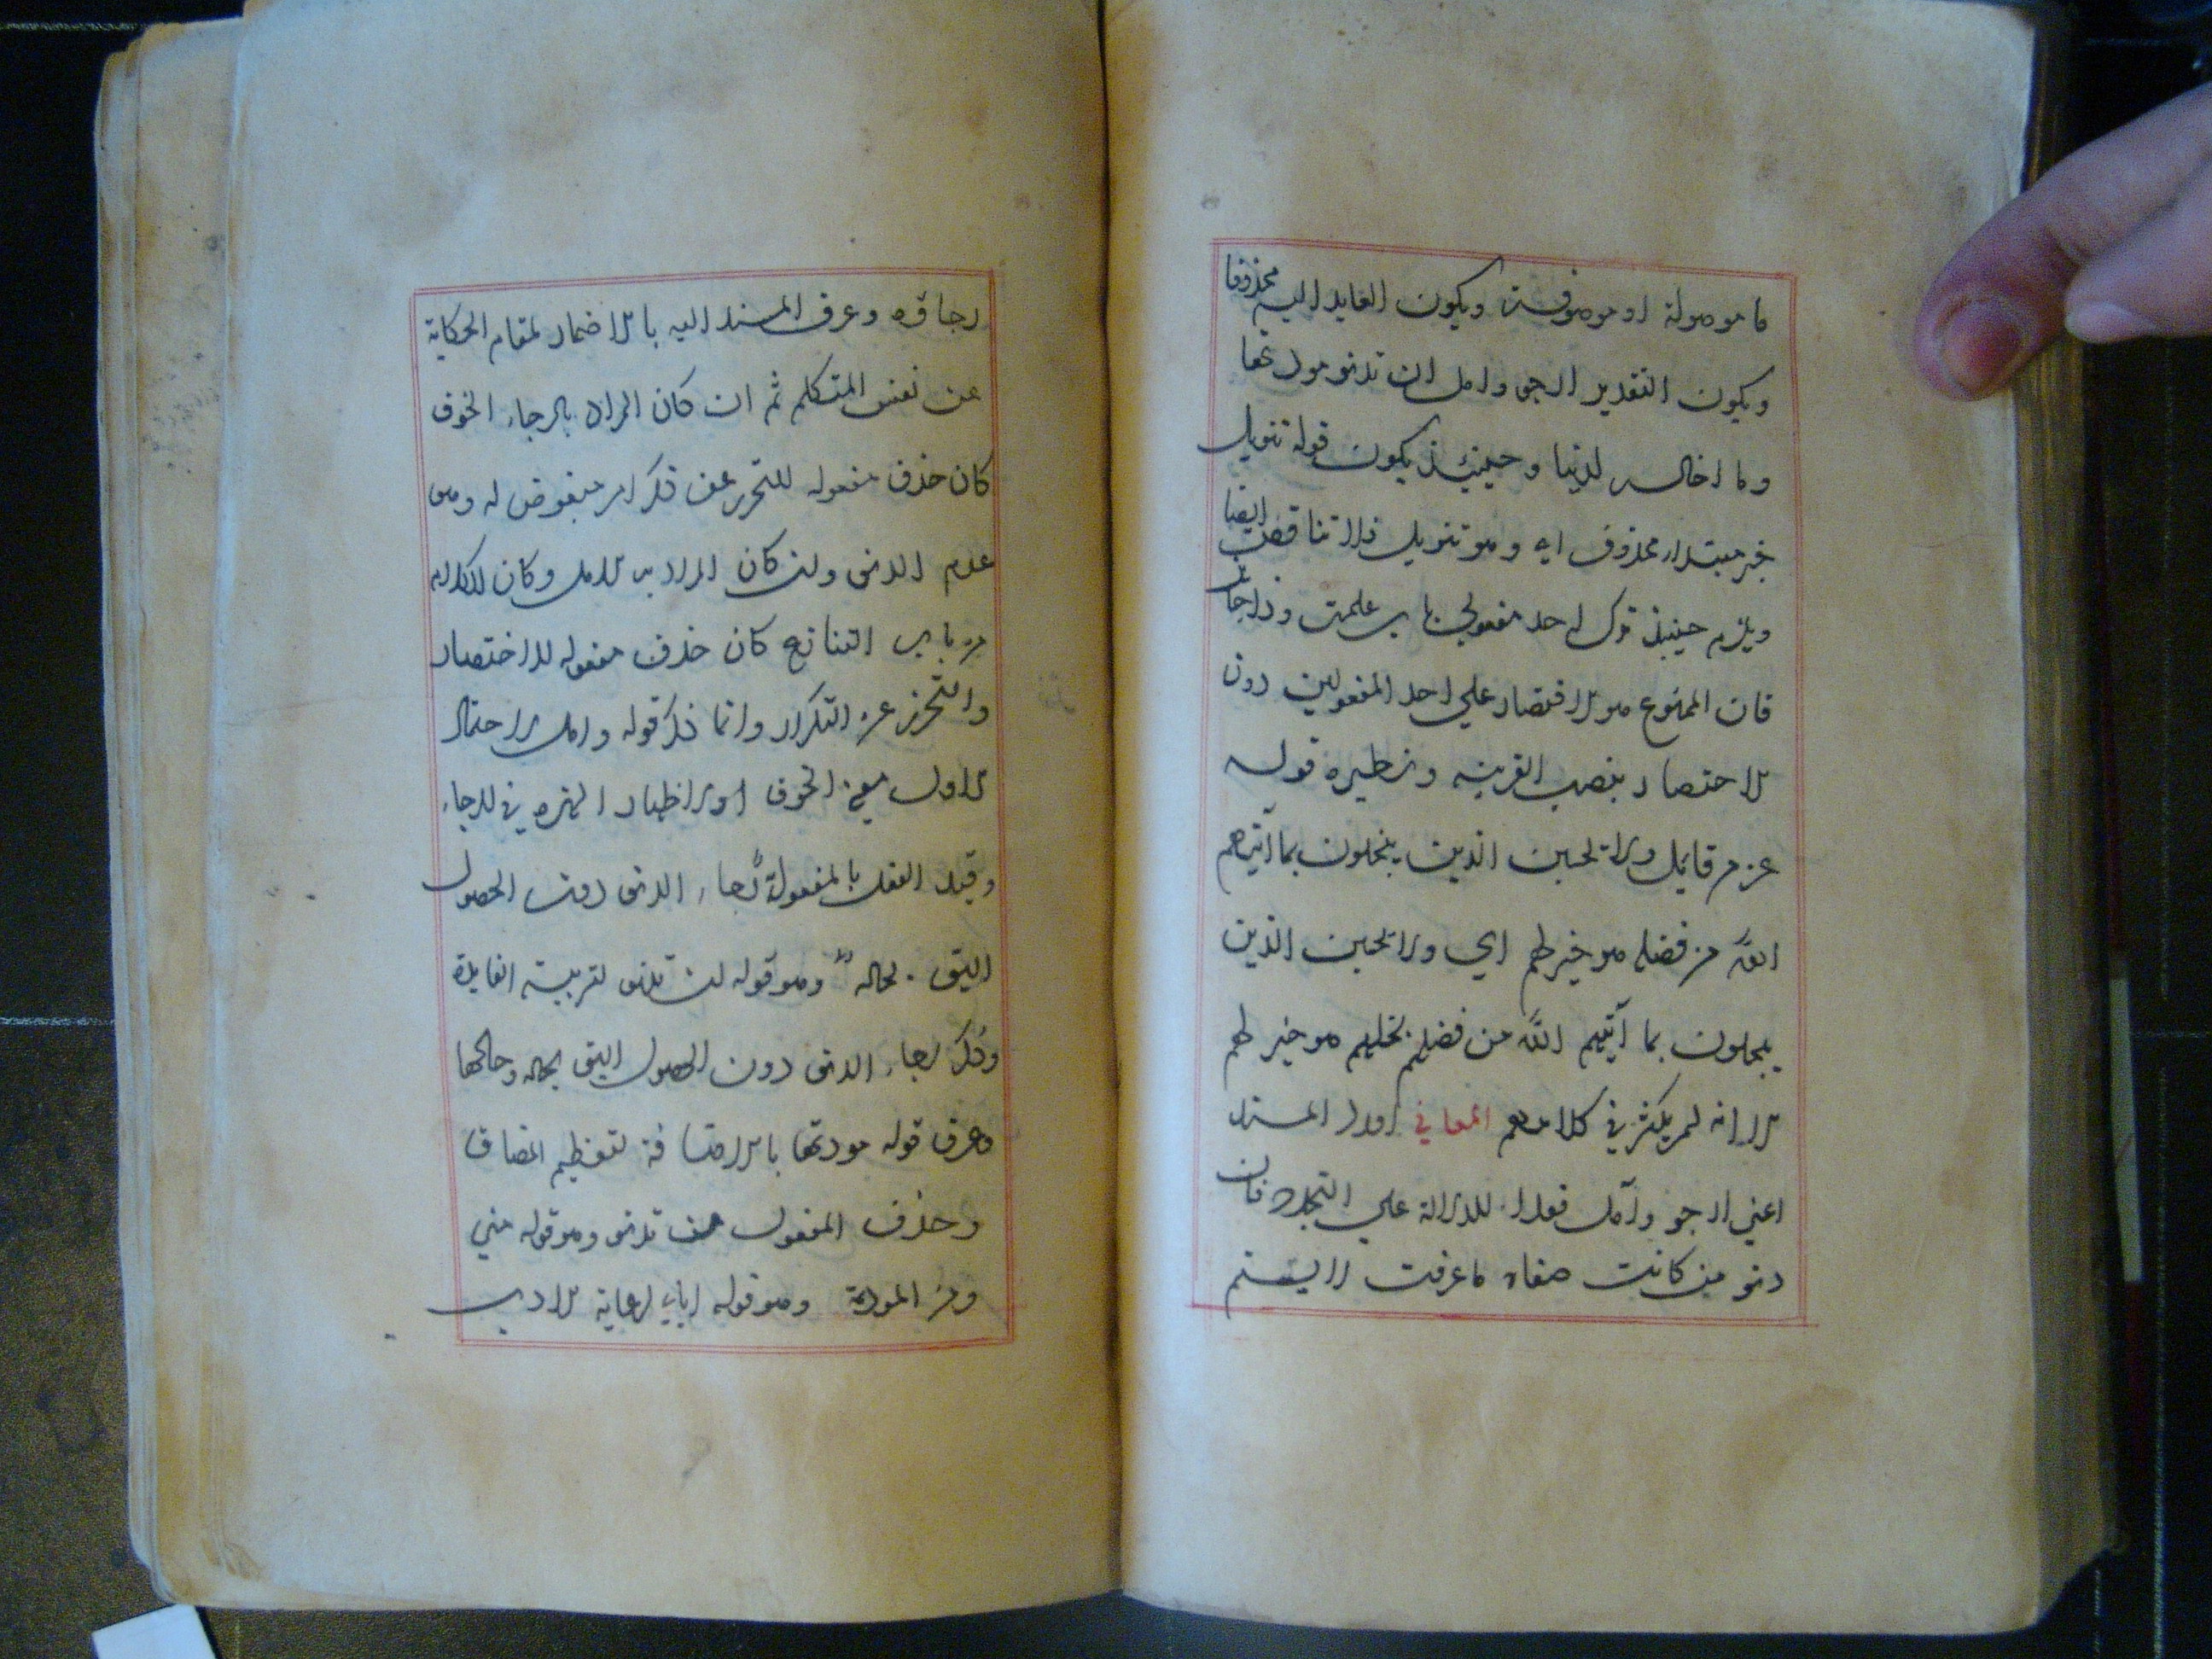 ما موصولة او موصوفة ويكون العايد اليه محذوفا
ويكون التقدير ارجو وامل ان تدنو مودتها
وما اخال لدينا وحينئذ يكون قوله تنويل
خبر مبتداء محذوف اي وهو تنويل فلا تناقض ايضا
ويلزم حينئذ ترك احد مفعولي باب علمت وذا جائز
فان الممنوع هو الاقتصار علي احد المفعولين دون
الاختصار بنصب القرينه ونظيره قوله
عز من قايل ولا تحسبن الذين يبخلون بما آتيهم
الله من فضله هو خير لهم اي ولا تحسبن الذين
يبخلون بما آتيهم الله من فضله بخلهم هو خير لهم
الا انه لم يكثر في كلامهم المعاني اورد المسند
اعني ارجو وآمل فعلا للدلالة علي التجدد فان
دنو من كانت صفاته ما عرفت لا يستمر
رجاؤه وعرف المسند اليه بالاضمار لمقام الحكاية
عن نفس المتكلم ثم ان كان المراد بالرجاء الخوف
كان حذف مفعوله للتحرز عن ذكر امر مبغوض له وهو
عدم الدنو وان كان المراد به الامل وكان الكلام
من باب التنازع كان حذف مفعوله للاختصار
والتحرز عن التكرار وانما ذكر قوله وامل لاحتمال
الاول معني الخوف او لاظهار الشره في الرجاء
وقيد الفعل بالمفعول لان رجاء الدنو دون الحصول
اليق بحاله وهو قوله ان تدنو لتربية الفايدة
وذكر رجاء الدنو دون الحصول اليق بحاله وحالها
وعرف قوله مودتها بالاضافة لتعظيم المضاف
وحذف المفعول عن تدنو وهو قوله مني
ومن المودة وهو قوله اياي لرعاية الادب